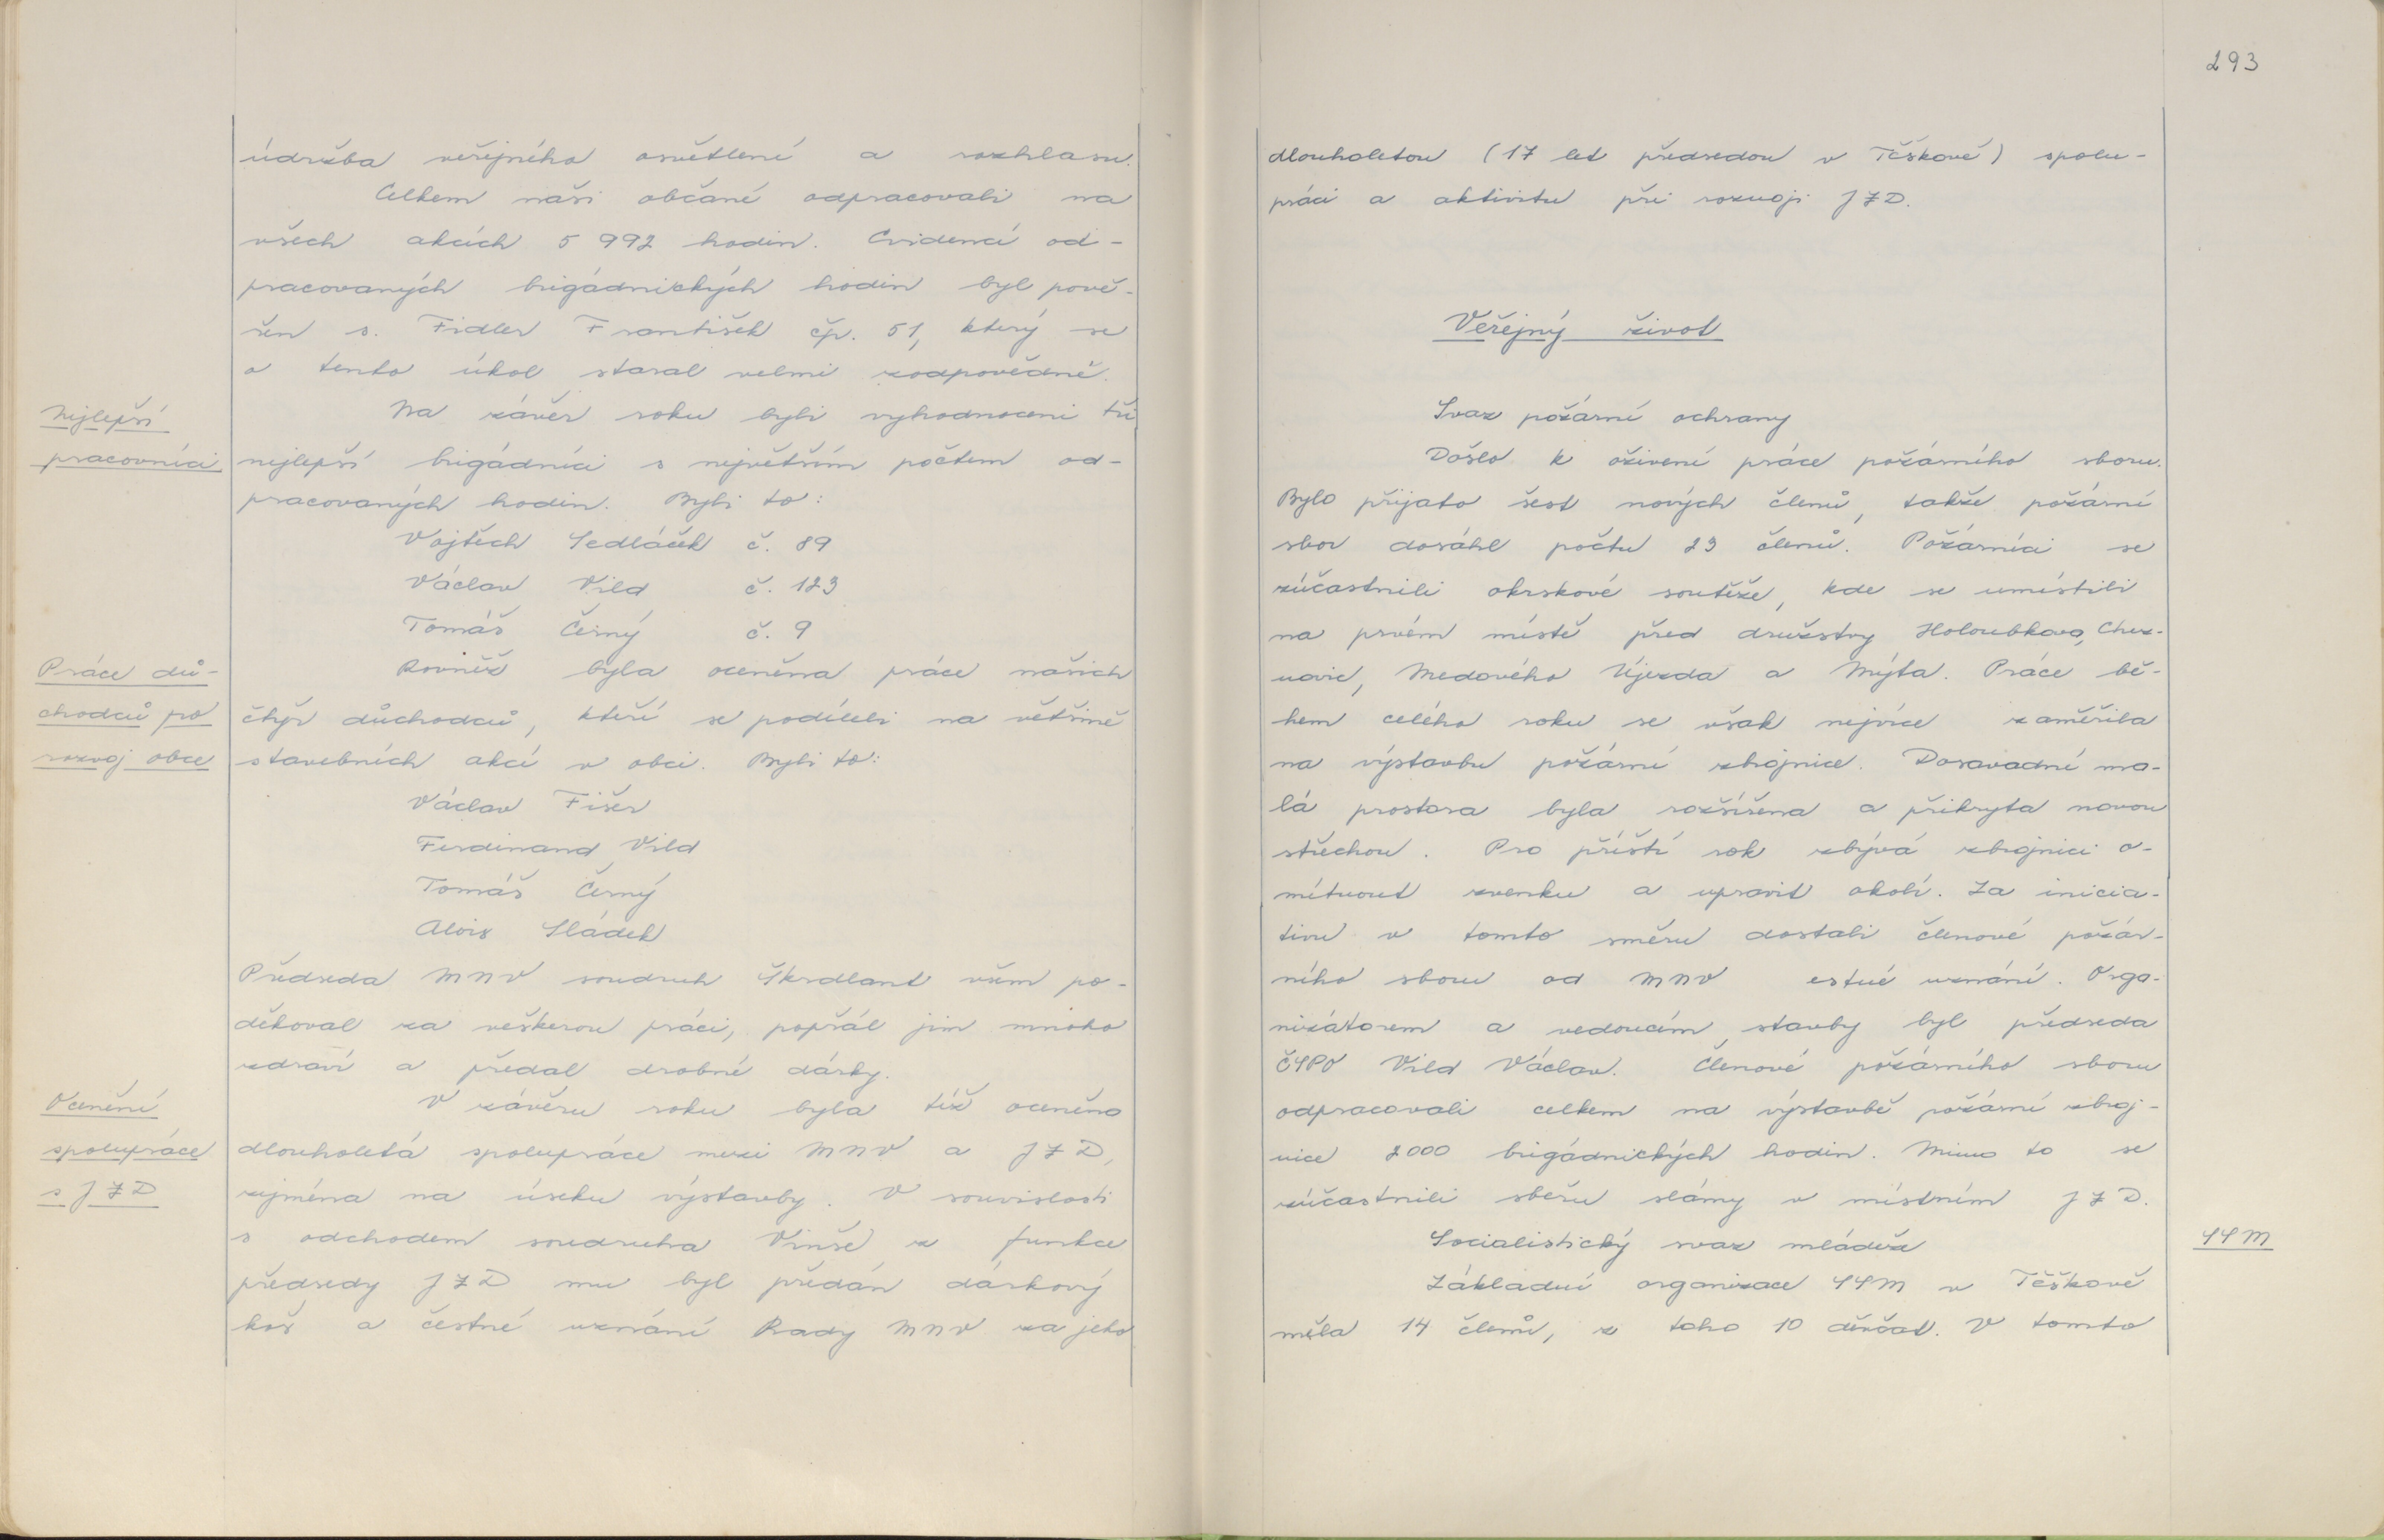 údržba veřejného osvětlení a rozhlasu.
Celkem naši občané odpracovali na
všech akcích 5 992 hodin. Evidencí od-
pracovaných brigádnických hodin byl pově-
řen s. Fidler František čp. 51, který se
o tento úkol staral velmi zodpovědně.
Nejlepší
pracovníci
Na závěr roku byli vyhodnoceni tři
nejlepší brigádníci s největším počtem od-
pracovaných hodin. Byli to:
Vojtěch Sedláček č. 89
Václav Vild č. 123
Tomáš Černý č. 9
Práce dů-
chodců po
rozvoj obce
Rovněž byla oceněna práce našich
čtyř důchodců, kteří se podíleli na většině
stavebních akcí v obci. Byli to:
Václav Fišer
Ferdinand Vild
Tomáš Černý
Alois Sládek
Předseda MNV soudruh Škrdlant všem po-
děkoval za veškerou práci, popřál jim mnoho
zdraví a předal drobné dárky.
Ocenění
spolupráce
s JZD
V závěru roku byla též oceněna
dlouholetá spolupráce mezi MNV a JZD,
zejména na úseku výstavby. V souvislosti
s odchodem soudruha Vinše z funkce
předsedy JZD mu byl předán dárkový
koš a čestné uznání Rady MNV za jeho
293
dlouholetou (17 let předsedou v Těškově) spolu-
práci a aktivitu při rozvoji JZD.
Veřejný život
Svaz požární ochrany
Došlo k oživení práce požárního sboru.
Bylo přijato šest nových členů, takže požární
sbor dosáhl počtu 23 členů. Požárníci se
zúčastnili okrskové soutěže, kde se umístili
na prvém místě před družstvy Holoubkova, Chez-
novic, Medového Újezda a Mýta. Práce bě-
hem celého roku se však nejvíce zaměřila
na výstavbu požární zbrojnice. Dosavadní ma-
lá prostora byla rozšířena a přikryta novou
střechou. Pro příští rok zbývá zbrojnici o-
mítnout zvenku a upravit okolí. Za inicia-
tivu v tomto směru dostali členové požár-
ního sboru od MNV estné uznání. Orga-
nizátorem a vedoucím stavby byl předseda
ČSPO Vild Václav. Členové požárního sboru
odpracovali celkem na výstavbě požární zbroj-
nice 2000 brigádnických hodin. Mimo to se
zúčastnili sběru slámy v místním JZD.
SSM
Socialistický svaz mládeže
Základní organizace SSM v Těškově
měla 14 členů, z toho 10 děvčat. V tomto